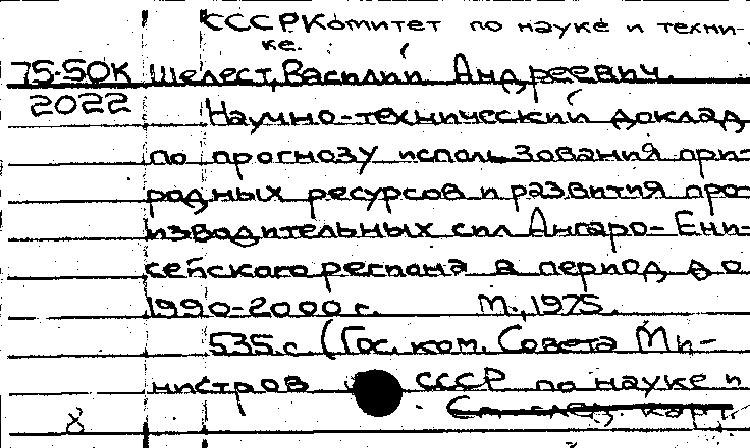 СССР Комитет по науке и техни-
ке.
75-50К Шелест, Василий Андреевич.
2022 Научно-технический доклад
по прогнозу использования при-
родных ресурсов и развития про-
изводительных сил Ангаро-Ени-
сейского региона в период до
1990-2000 г. М., 1975.
535 с. (Гос. ком. Совета Ми-
нистров СССР по науке и
См. след. карт.
8